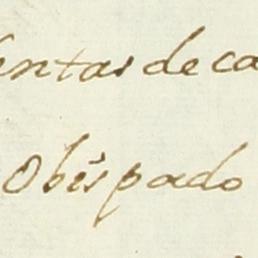 entas de ca
Obispado